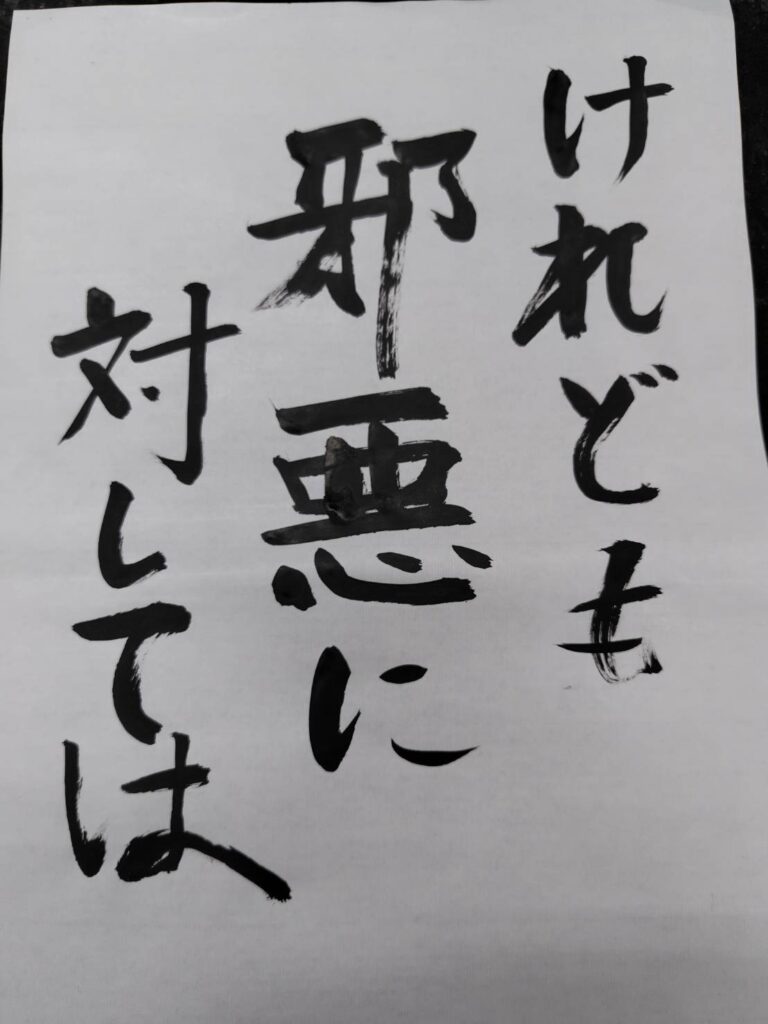 けれども
邪悪に
対しては